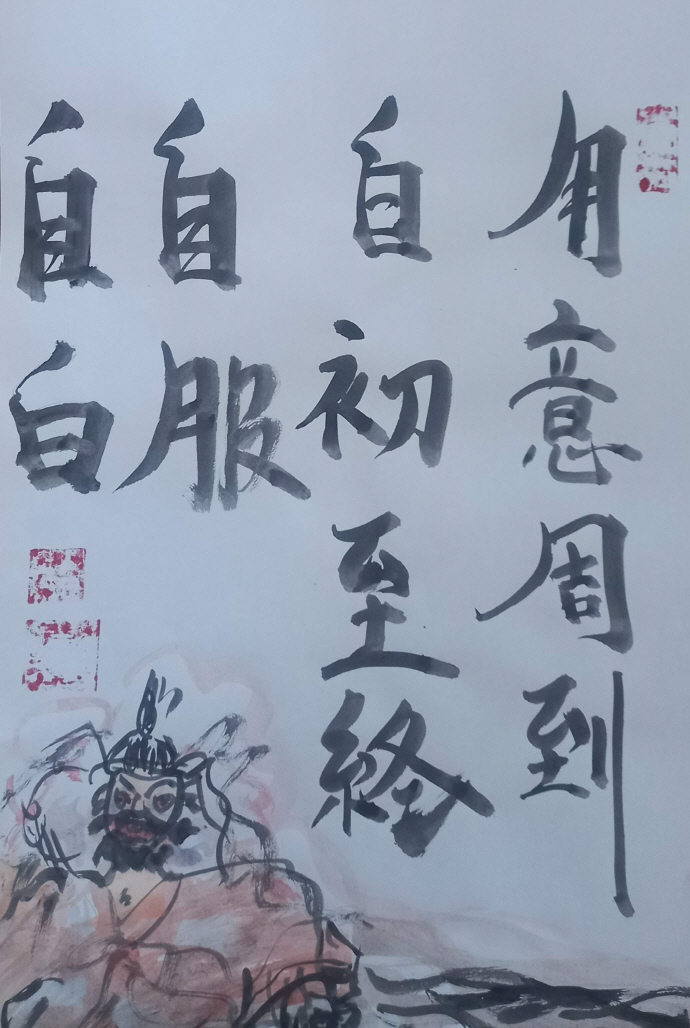 用意周到
自初至終
自服
自白